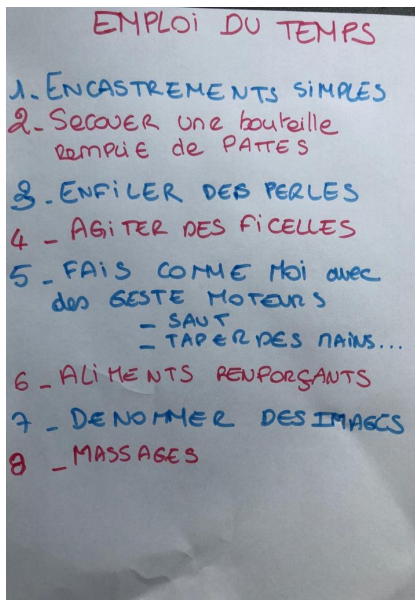 EMPLOI DU TEMPS
1. ENCASTREMENTS SIMPLES
2. SECOUER une bouteille
REMPLIE de PATES
3. ENFILER DES PERLES
4 _ AGITER DES FICELLES
5 _ FAIS COMME MOI avec
des GESTE MOTEURS
_ SAUT
_ TAPER DES MAINS...
6 _ ALIMENTS RENFORÇANTS
7 _ DENOMMER DES IMAGES
8 _ MASSAGES